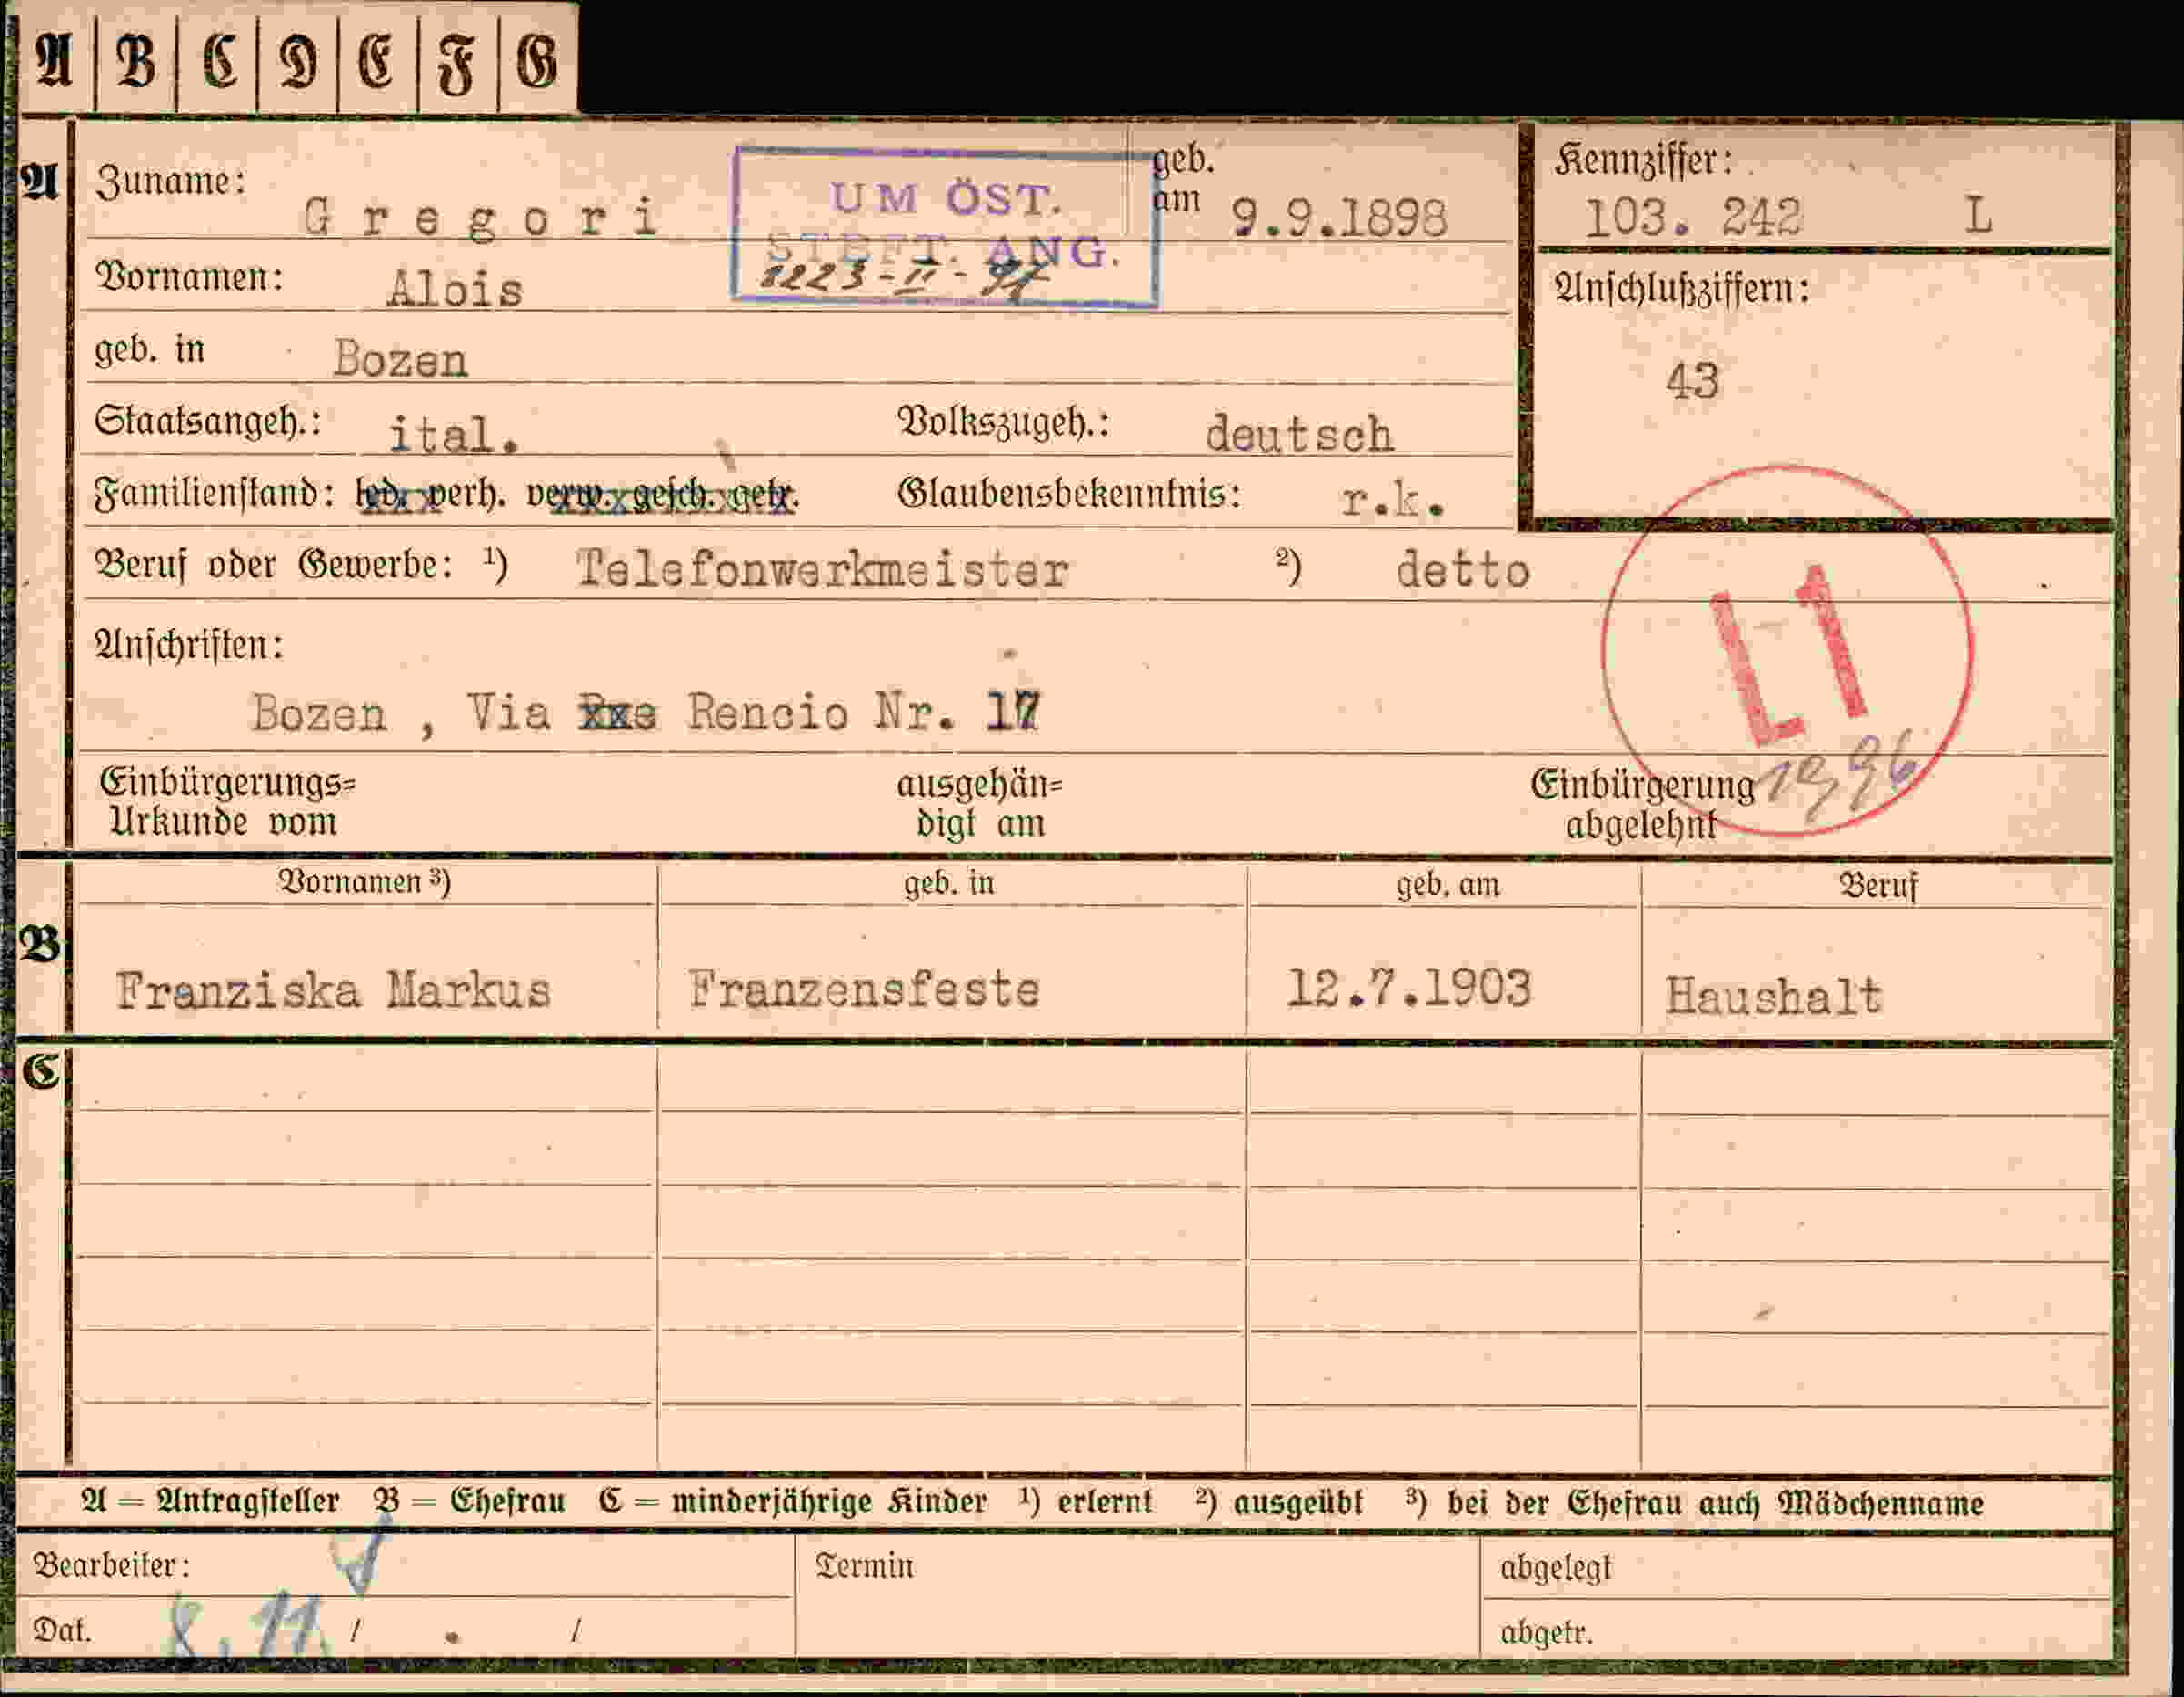 A B C D E F G
A
Zuname: Gregori
UM ÖST.
STBFT. ANG.
1223-II-
geb.
am 9.9.1898
Kennziffer:
103. 242 L
Vornamen: Alois
Anschlußziffern:
43
geb. in Bozen
Staatsangeh.: ital. Volkszugeh.: deutsch
Familienstand: led. verh. verw. gesch. getr. Glaubensbekenntnis: r.k.
Beruf oder Gewerbe: ¹) Telefonwerkmeister ²) detto
L1
Anschriften:
Bozen , Via Rencio Nr. 17
Einbürgerungs=
Urkunde vom
ausgehän=
digt am
Einbürgerung
abgelehnt
Vornamen ³) geb. in geb. am Beruf
B
Franziska Markus Franzensfeste 12.7.1903 Haushalt
C
A = Antragsteller B = Ehefrau C = minderjährige Kinder ¹) erlernt ²) ausgeübt ³) bei der Ehefrau auch Mädchenname
Bearbeiter: Termin abgelegt
Dat. 8.11. / / abgetr.